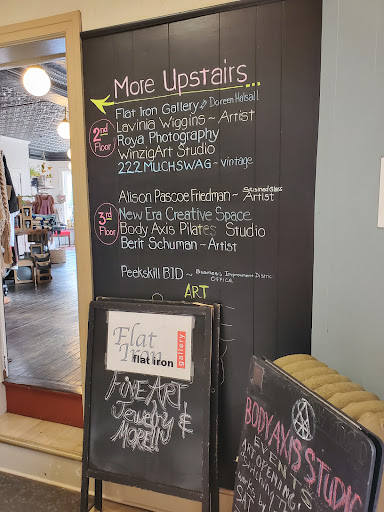 More Upstairs
Flat Iron Gallery // Doreen Halsall
Lavinia Wiggins ~ Artist
2nd Floor
Roya Photography
WinzigArt Studio
222 MUCHSWAG ~ Vintage
Alison Pascoe Friedman ~ Stained Glass Artist
3rd Floor
New Era Creative Space
Body Axis Pilates Studio
Berit Schuman ~ Artist
Peekskill BID ~ Business Improvement Distric Office
ART
Flat Iron
flat iron
gallery
FINE ART
Jewelry &
MORE!!!
BODY AXIS STUDIO
EVENTS
ART OPENING
SAT